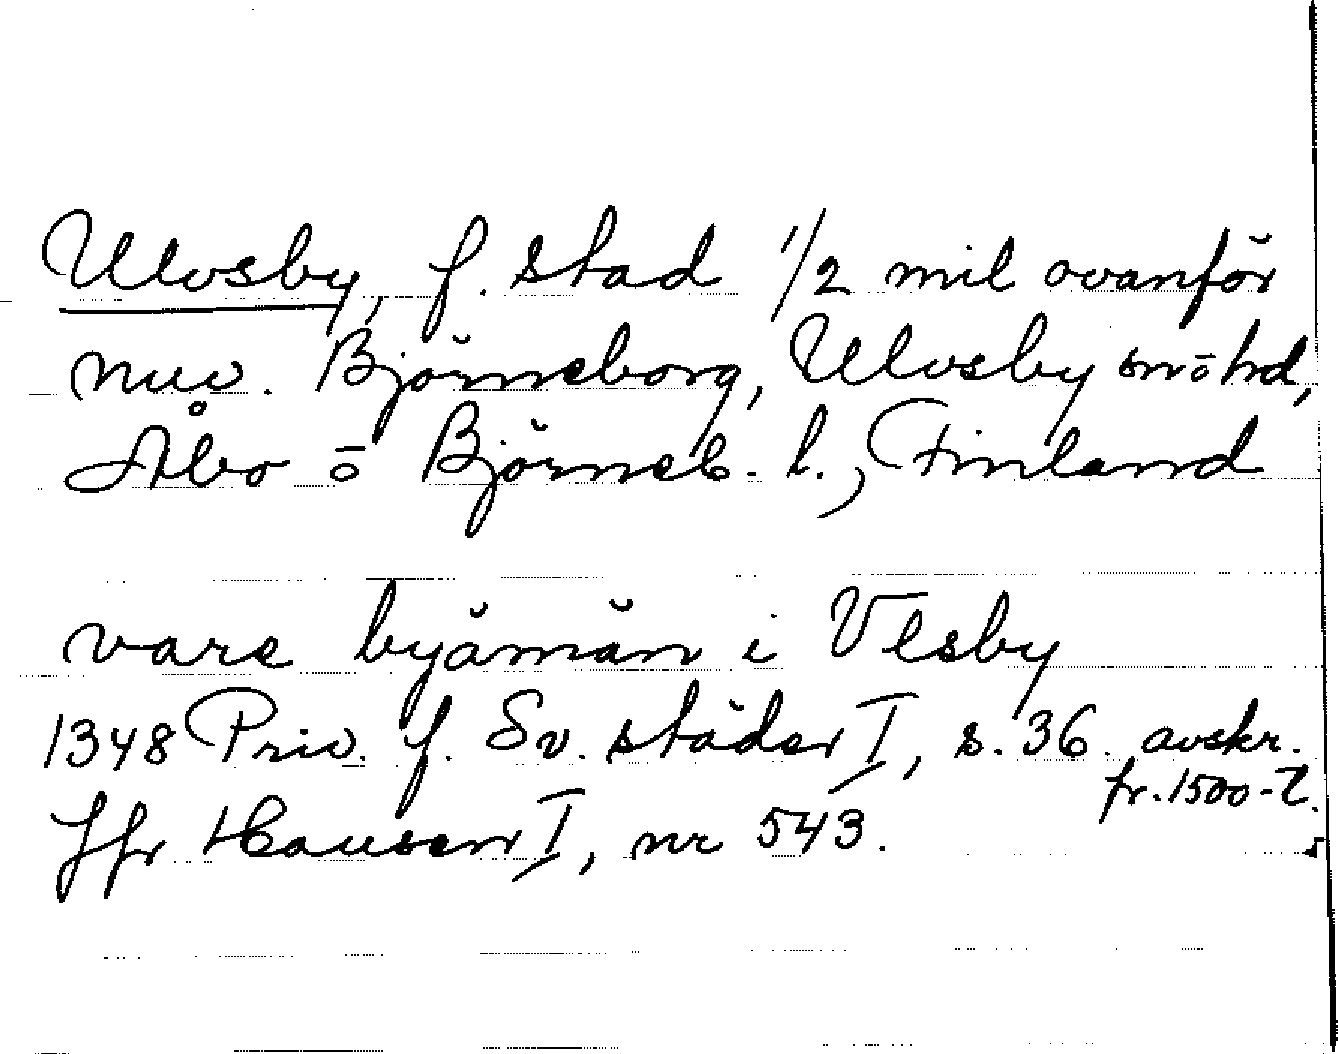 Ulvsby, f. stad 1/2 mil ovanför
nuv. Björneborg, Ulvsby sn o hd,
Åbo o Björneb. l., Finland
vare byämän i Vlsby
1348 Priv. f. Sv. städer I, s. 36. avskr.
fr. 1500-t.
Jfr Hausen I, nr 543.